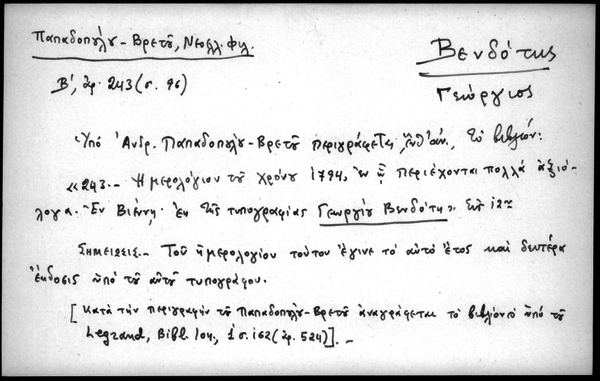 Παπαδοπούλου-Βρετοῦ, Νεοελλ. φιλ.
Βενδότης
Γεώργιος
Β', ἀρ. 243 (σ. 96)
Ὑπὸ Ἀνδρ. Παπαδοπούλου-Βρετοῦ περιγράφεται, ἐνθ' ἀν., τὸ βιβλίον:
«243.- Ἡμερολόγιον τοῦ χρόνου 1794, ἐν ᾧ περιέχονται πολλὰ ἀξιό-
λογα. Ἐν Βιέννῃ. Ἐκ τῆς τυπογραφίας Γεωργίου Βενδότη». Εἰς 12ον
Σημείωσις.- Τοῦ ἡμερολογίου τούτου ἔγινε τὸ αὐτὸ ἔτος καὶ δευτέρα
ἔκδοσις ὑπὸ τοῦ αὐτοῦ τυπογράφου.
[Κατὰ τὴν περιγραφὴν τοῦ Παπαδοπούλου-Βρετοῦ ἀναγράφεται τὸ βιβλίον ὑπὸ τοῦ
Legrand, Bibl. Ion., 1 σ. 162 (ἀρ. 524)].-